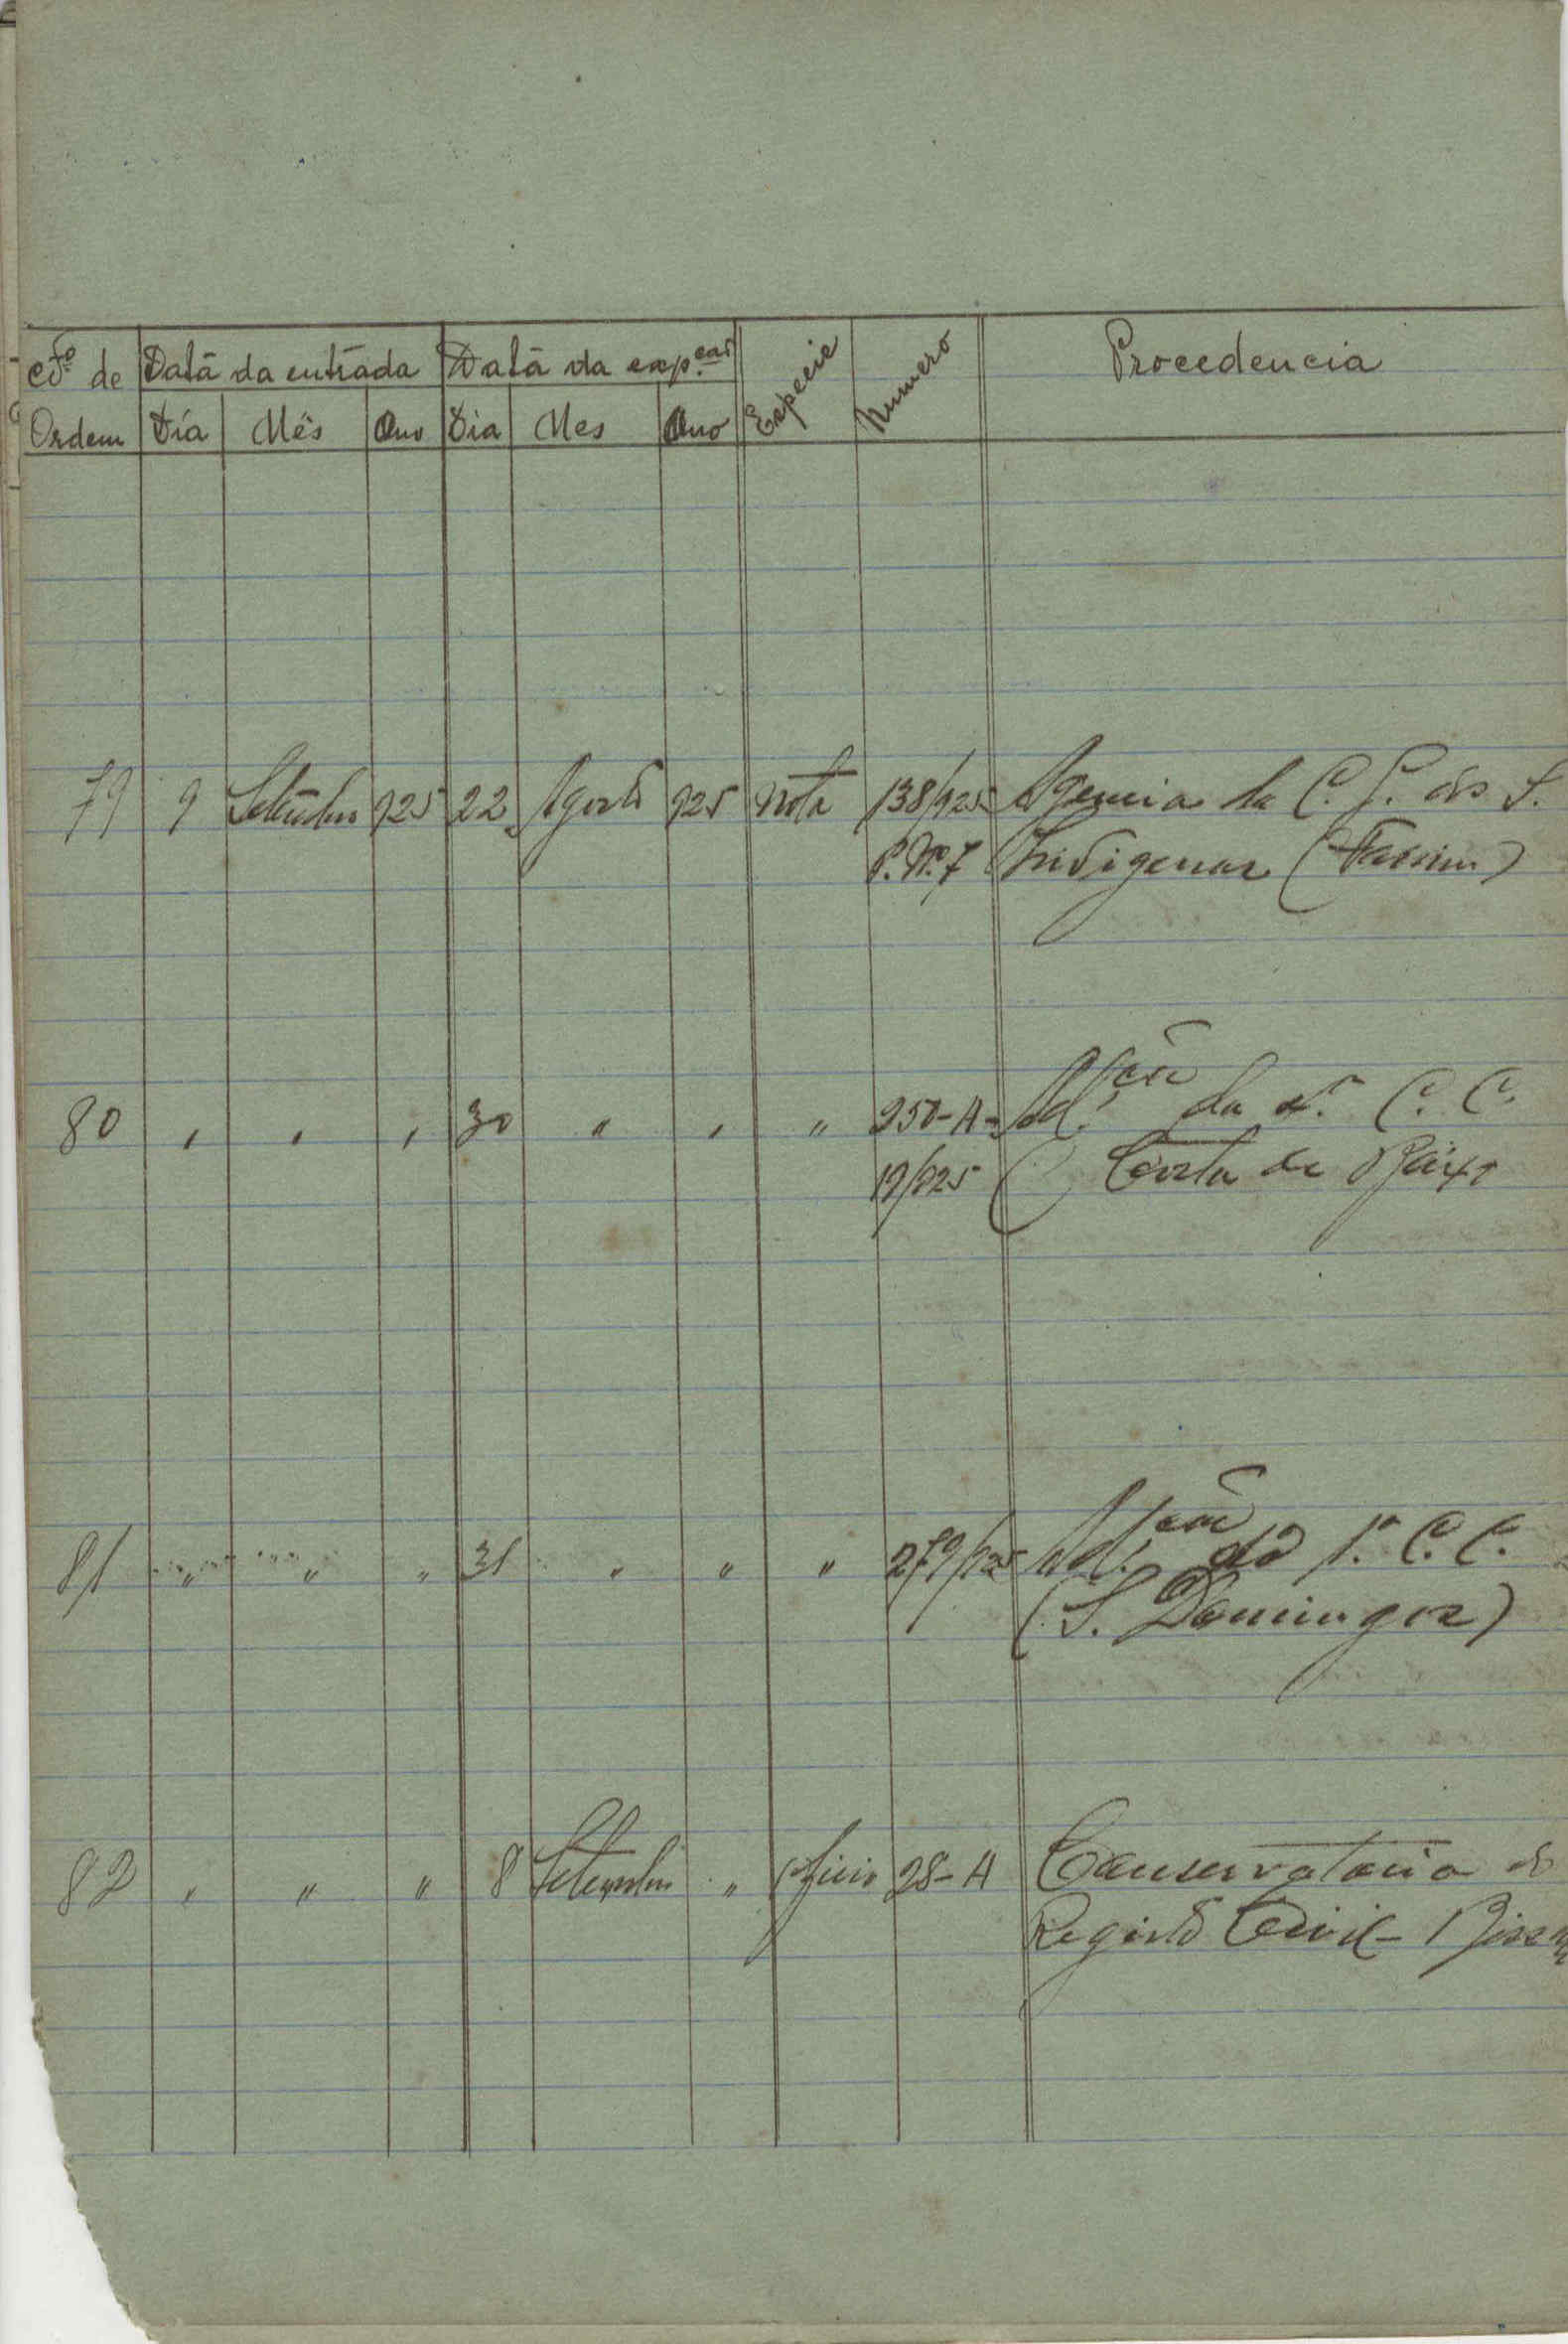 Nº de Data da entrada Data da exp.ção Especie Numero Procedencia
Ordem Dia Mês Ano Dia Mes Ano
79 9 Setembro 925 22 Agosto 925 Nota 138/925 Agencia da C. G. dos S.
P. Nº. 7 Indigenas (Farim)
80 " " " 30 " " " 250-A- Ad.ção da C. C.
19/925 Costa de Baixo
81 " " " 31 " " " 279/925 Ad.ção da C. C.
(S. Domingos)
82 " " " 8 Setembro " Oficio 28-A Conservatoria do
Registo Civil - Bissau